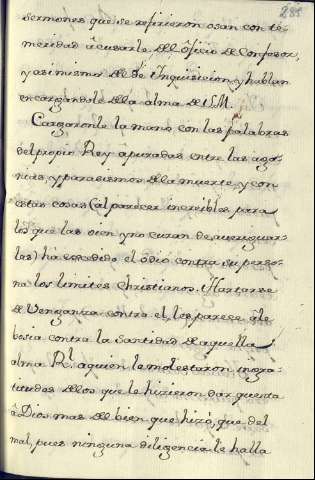 285
sermones que se refirieron osan con te-
meridad âcusarle del ôficio de Confesor,
y asi mismo de Sᵗᵒ Inquisicion, y hablan
encargandole dela alma de S.M.
Cargaronle la mano con las palabras
del propio Rey âpuradas entre las ago-
nias, y parasismos dela muerte, y con
estas cosas (al parecer increibles para
los que las oien y no curan de averiguar-
las) ha excedido el ôdio contra su perso-
na los limites Christianos. Hartarse
de Venganza contra el, les parece âle
bosia contra la Santidad de aquella
alma Rˡ. aquien le molestaron ingra-
titudes delos que le hicieron dar quenta
â Dios mas del bien que hizo, que del
mal, pues ninguna diligencia le halla